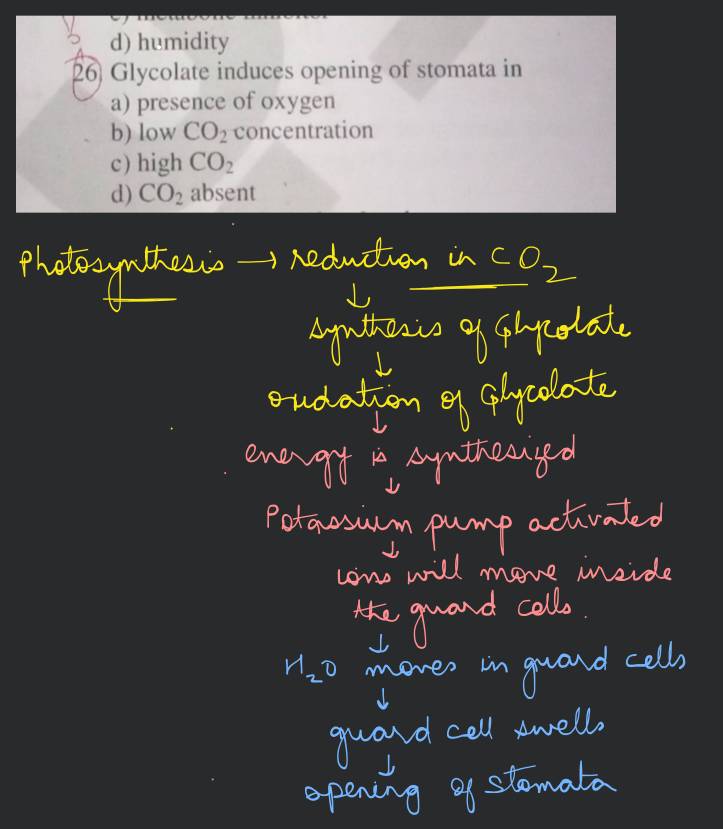 d) humidity
26) Glycolate induces opening of stomata in
a) presence of oxygen
b) low CO₂ concentration
c) high CO₂
d) CO₂ absent
Photosynthesis → reduction in CO₂
↓
synthesis of Glycolate
↓
oxidation of Glycolate
↓
energy is synthesized
↓
Potassium pump activated
↓
ions will move inside
the guard cells.
↓
H₂O moves in guard cells
↓
guard cell swells
↓
opening of stomata